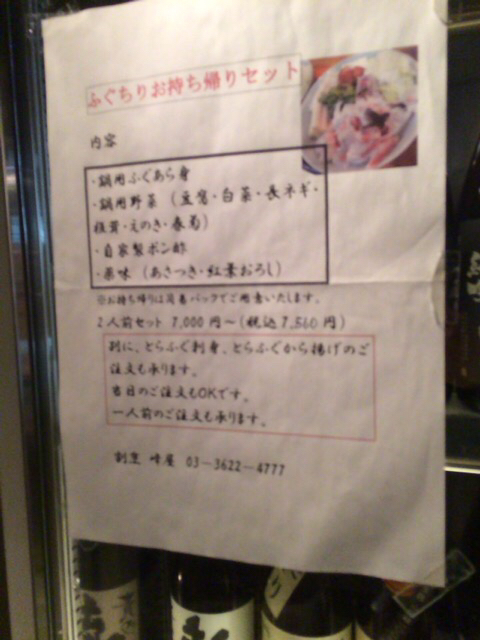 ふぐちりお持ち帰りセット
内容
・鍋用ふぐあら身
・鍋用野菜（豆腐・白菜・長ネギ・
椎茸・えのき・春菊）
・自家製ポン酢
・薬味（あさつき・紅葉おろし）
※お持ち帰りは真空パックでご用意いたします。
2人前セット 7,000円～(税込7,560円)
別に、とらふぐ刺身、とらふぐから揚げのご
注文も承ります。
当日のご注文もOKです。
一人前のご注文も承ります。
割烹 峰屋 03－3622－4777